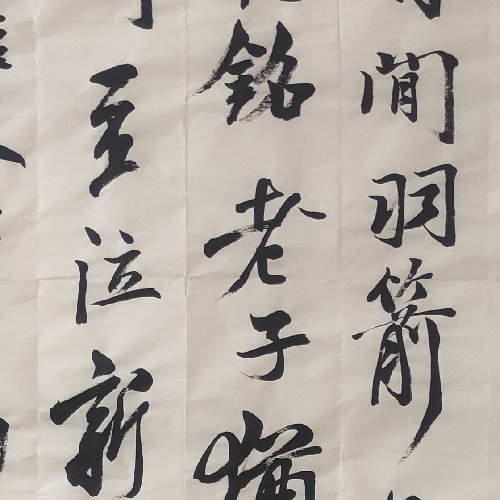 間羽箭
銘老子猶
至泣新